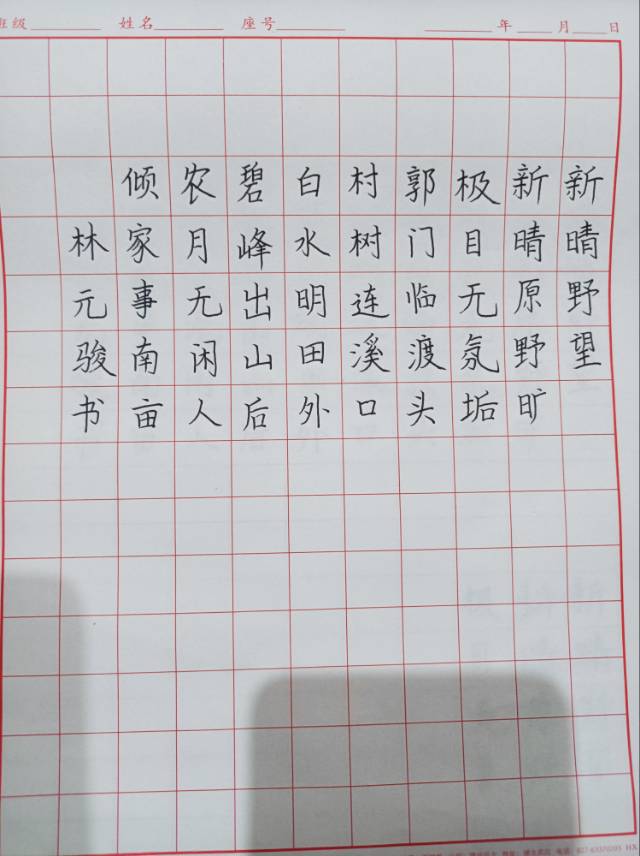 班级 姓名 座号 年 月 日
新晴野望
新晴原野旷
极目无氛垢
郭门临渡头
村树连溪口
白水明田外
碧峰出山后
农月无闲人
倾家事南亩
林元骏书